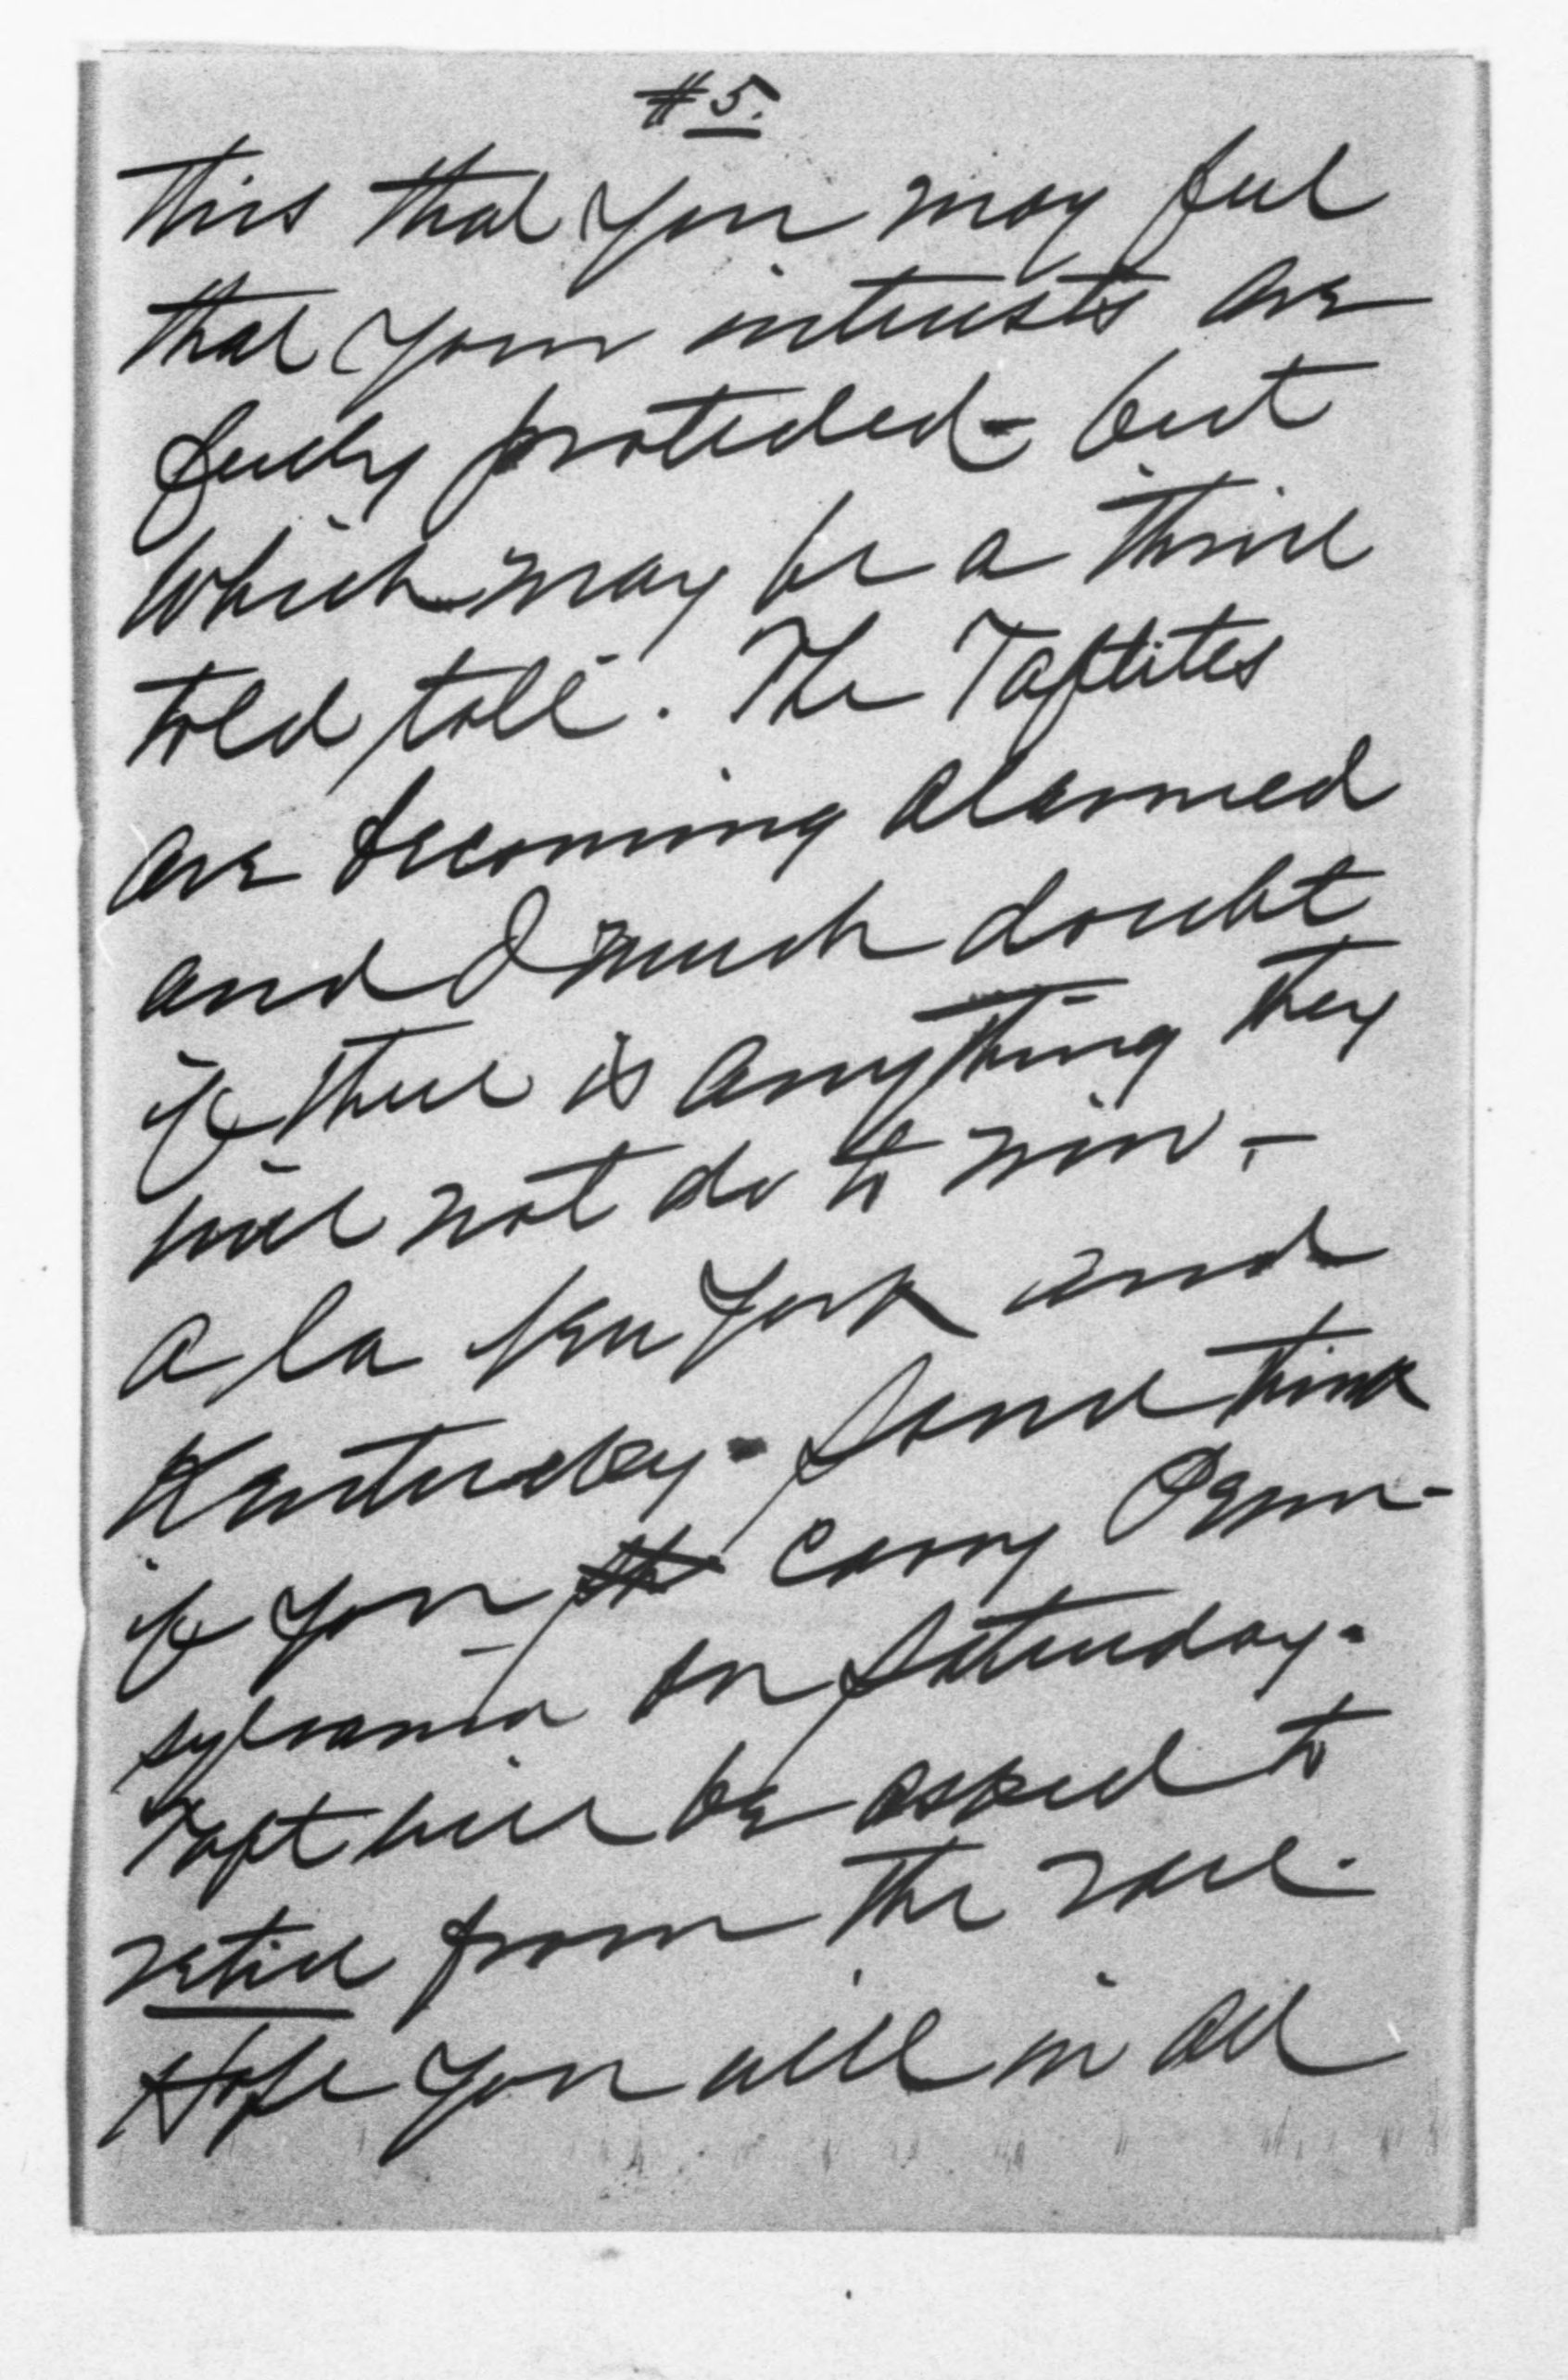 #5.
this that you may feel
that your interests are
fully protected - but
which may be a thrice
told tale. The Taftites
are becoming alarmed
and I much doubt
if there is anything they
will not do to win -
a la New York and
Kentucky - Some think
if you carry Penn-
sylvania on Saturday -
Taft will be asked to
retire from the race.
Hope you will in all